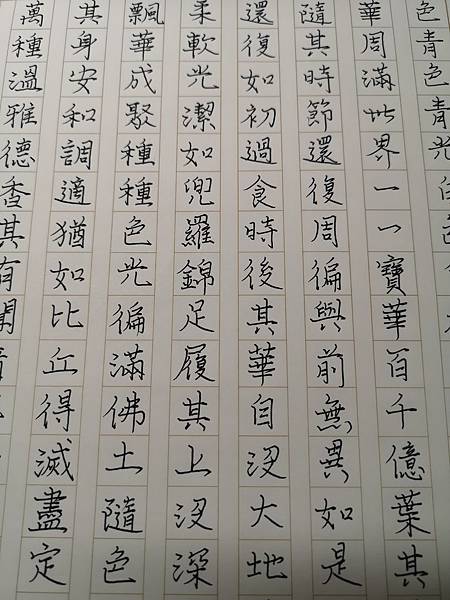 萬種溫雅德香其有聞
其身安和調適猶如比丘得滅盡定
飄華成聚種種色光徧滿佛土隨色
柔軟光潔如兜羅錦足履其上沒深
還復如初過食時後其華自沒大地
隨其時節還復周徧與前無異如是
華周滿世界一一寶華百千億葉其
色青色青光白色